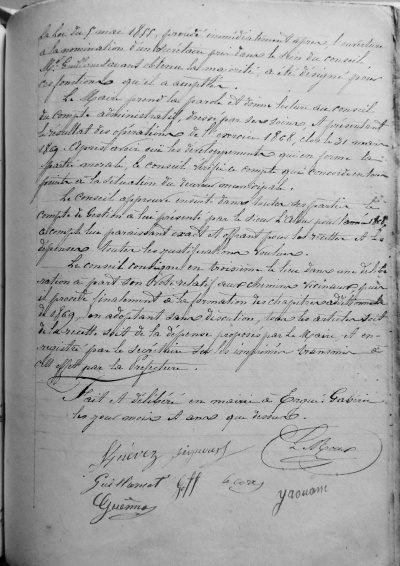 la loi du 5 mai 1855, procédé immédiatement après, l'ouverture
à la nomination d'un secrétaire pris dans le sein du conseil
Mr. Guillamet ayant obtenu la majorité, a été désigné pour
ces fonctions qu'il a acceptées
Le Maire prend la parole et donne lecture au conseil
du compte administratif, dressé par ses soins, et présentant
le résultat des opérations de l'exercice 1868, clos le 31 mars
1869. Après avoir oui les développements qui en forme la
partie morale, le conseil vérifie ce compte qui concorde en tous
points à la situation du receveur municipal.
Le conseil approuve ensuite dans toutes ses parties le
compte de Gestion à lui présenté par le sieur pour l'année 1868,
ce compte lui paraissant exact et offrant pour les recettes et les
dépenses toutes les justifications voulues.
Le conseil consignant en troisième lieu dans une délibé-
ration à part son vote relatif aux chemins vicinaux
il procède finalement à la formation de chapitres additionnels
de 1869, en adoptant sans discution, tous les articles soit
de la recette soit de la dépense proposés par le Maire, et en-
registrés par le secrétaire sur les imprimés transmis à
cet effet par la Préfecture.
Fait et délibéré en mairie à Ergué Gabéric
les jour mois et ans que dessus.
Le Mour
Guillamet
Yaouanc